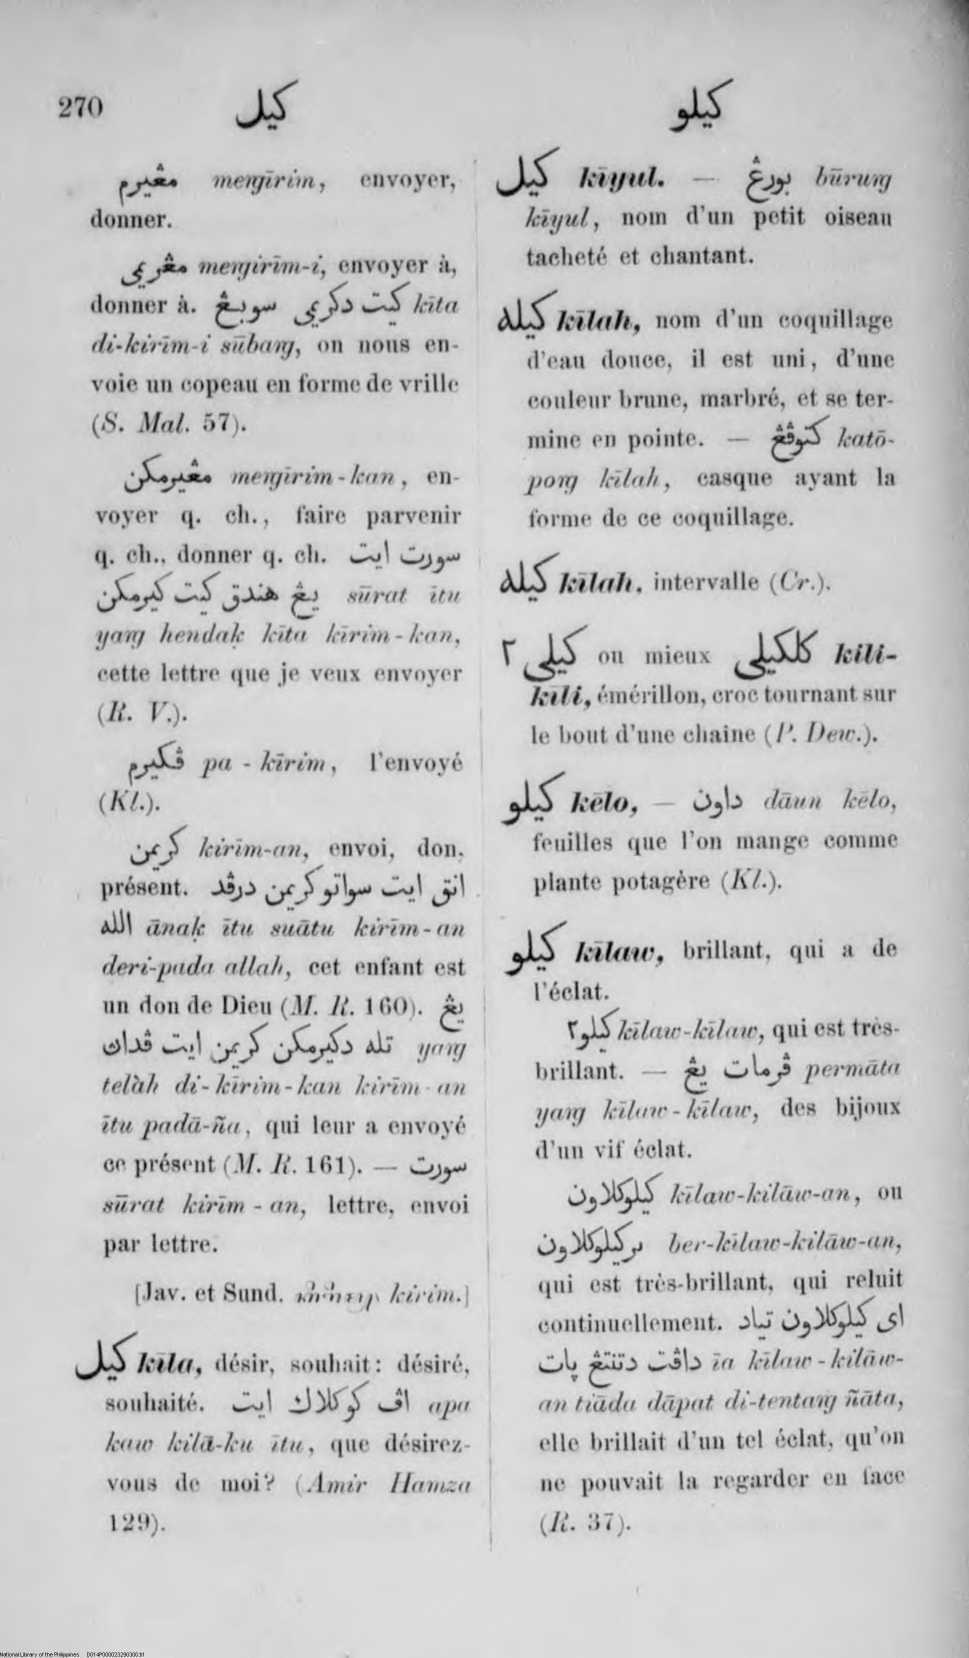 270
كيل
كيلو
مڠيرم meṅgīrim, envoyer,
donner.
مڠريمي meṅgirīm-i, envoyer à,
donner à. كيت دكريمي سوبڠ kīta
di-kirīm-i sūbaṅg, on nous en-
voie un copeau en forme de vrille
(S. Mal. 57).
مڠيرمكن meṅgīrim-kan, en-
voyer q. ch., faire parvenir
q. ch., donner q. ch. سورت ايت
يڠ هندق كيت كيرمكن sūrat ītu
yaṅg hendaḳ kīta kīrim-kan,
cette lettre que je veux envoyer
(R. V.).
ڤكيرم pa-kīrim, l'envoyé
(Kl.).
كريمن kirīm-an, envoi, don,
présent. انق ايت سواتو كريمن درڤد
الله ānaḳ ītu suātu kirīm-an
deri-pada allah, cet enfant est
un don de Dieu (M. R. 160). يڠ
تله دكيرمكن كريمن ايت ڤداڽ yaṅg
telàh di-kīrim-kan kirīm-an
ītu padā-ña, qui leur a envoyé
ce présent (M. R. 161). — سورت
sūrat kirīm-an, lettre, envoi
par lettre.
[Jav. et Sund. kirim.]
كيل kīla, désir, souhait: désiré,
souhaité. اڤ كو كلاك ايت apa
kaw kilā-ku ītu, que désirez-
vous de moi? (Amir Hamza
129).
كيل kīyul. — بورڠ būruṅg
kīyul, nom d'un petit oiseau
tacheté et chantant.
كيله kīlah, nom d'un coquillage
d'eau douce, il est uni, d'une
couleur brune, marbré, et se ter-
mine en pointe. — كتوڤڠ katō-
poṅg kīlah, casque ayant la
forme de ce coquillage.
كيله kīlah, intervalle (Cr.).
كيلي ٢ ou mieux كلكيلي kili-
kīli, émérillon, croc tournant sur
le bout d'une chaine (P. Dew.).
كيلو kēlo, — داون dāun kēlo,
feuilles que l'on mange comme
plante potagère (Kl.).
كيلو kīlaw, brillant, qui a de
l'éclat.
كيلو٢ kīlaw-kīlaw, qui est très-
brillant. — ڤرمات يڠ permāta
yaṅg kīlaw-kīlaw, des bijoux
d'un vif éclat.
كيلوكلاون kīlaw-kilāw-an, ou
بركيلوكلاون ber-kīlaw-kilāw-an,
qui est très-brillant, qui reluit
continuellement. اي كيلوكلاون تياد
داڤت دتنتڠ ڽات īa kīlaw-kilāw-
an tiāda dāpat di-tentaṅg ñāta,
elle brillait d'un tel éclat, qu'on
ne pouvait la regarder en face
(R. 37).
National Library of the Philippines